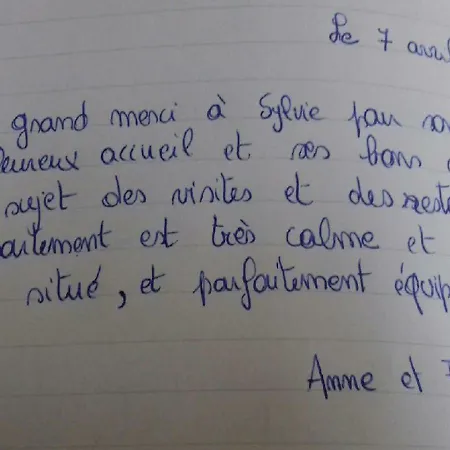 Le 7 avril
grand merci à Sylvie pour son
accueil et ses bons
sujet des visites et des
est très calme et
situé, et parfaitement équip
Anne et